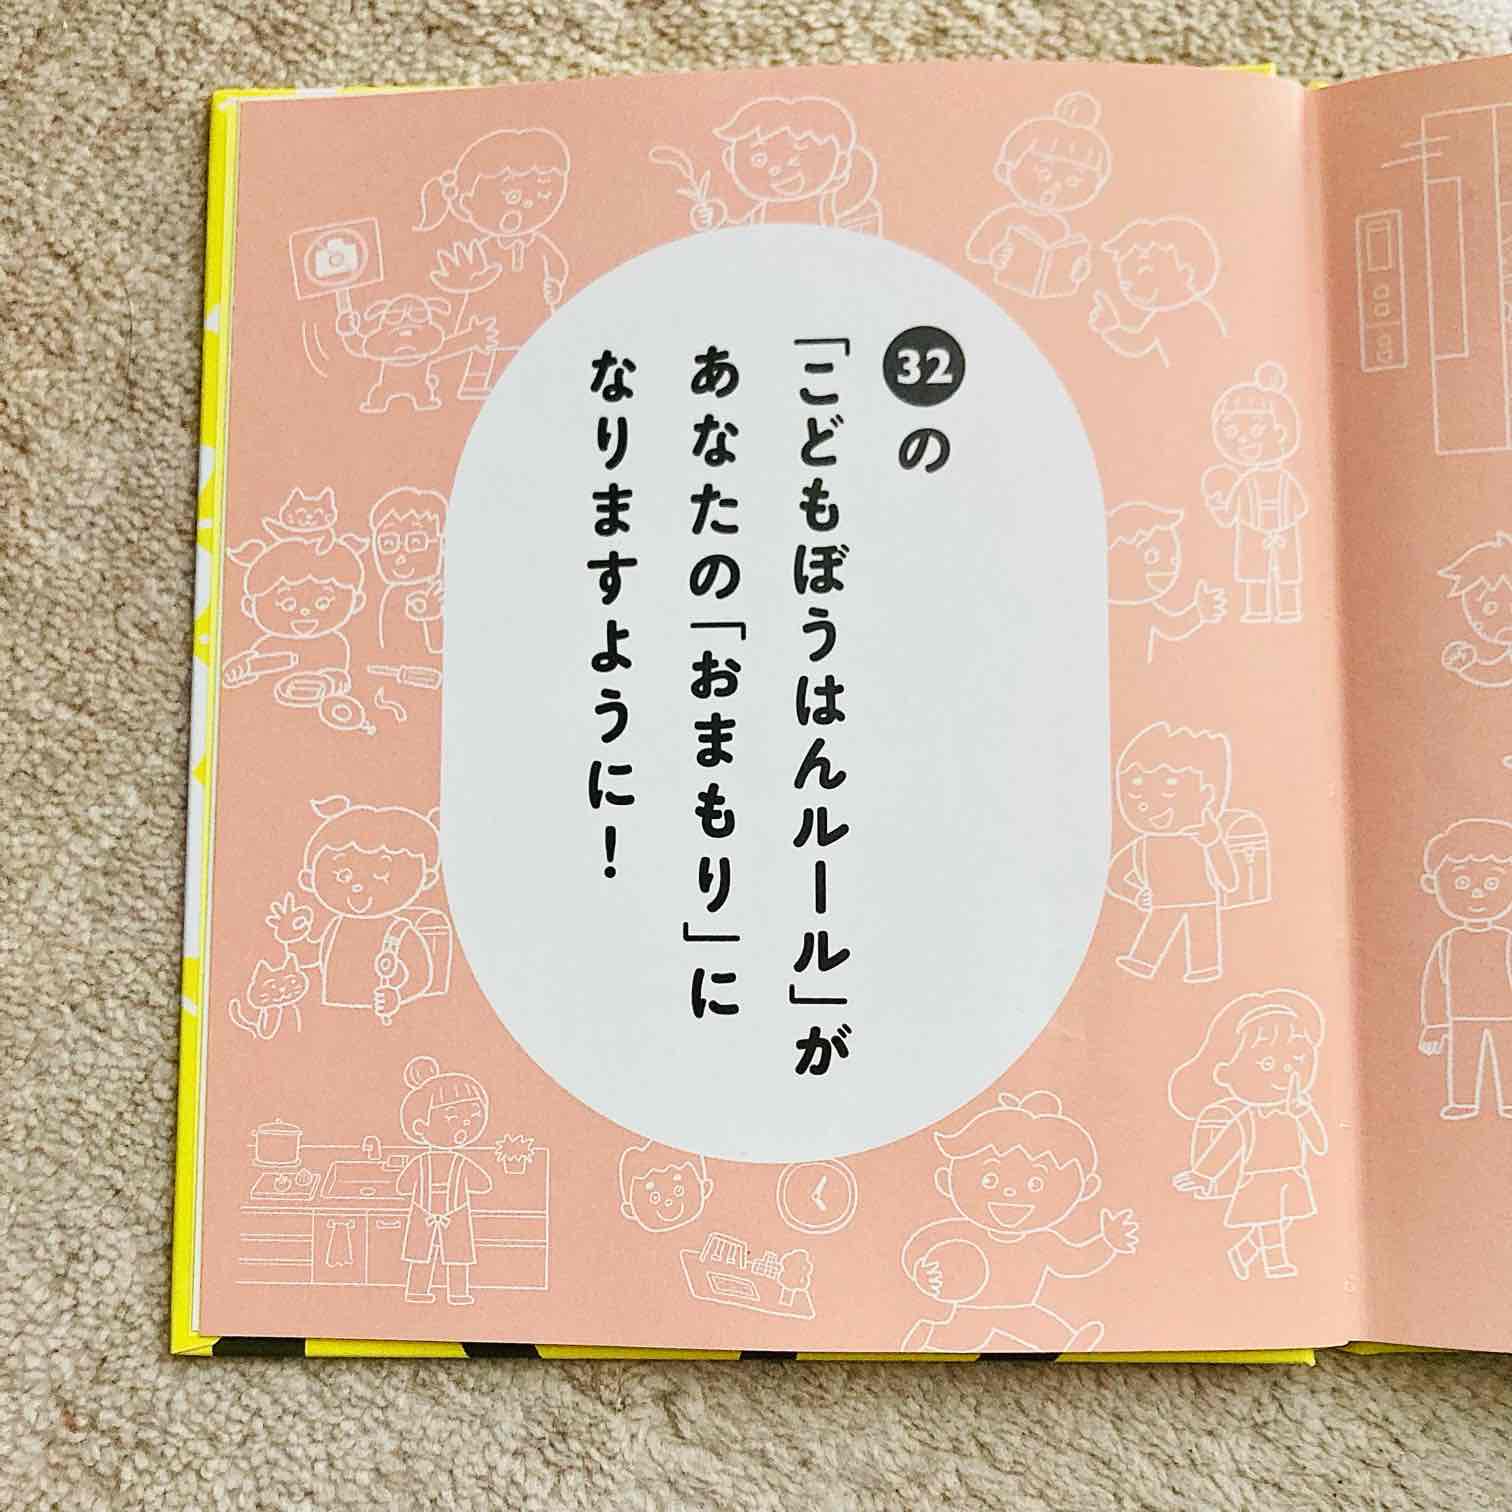 32の
「こどもぼうはんルール」が
あなたの「おまもり」に
なりますように！